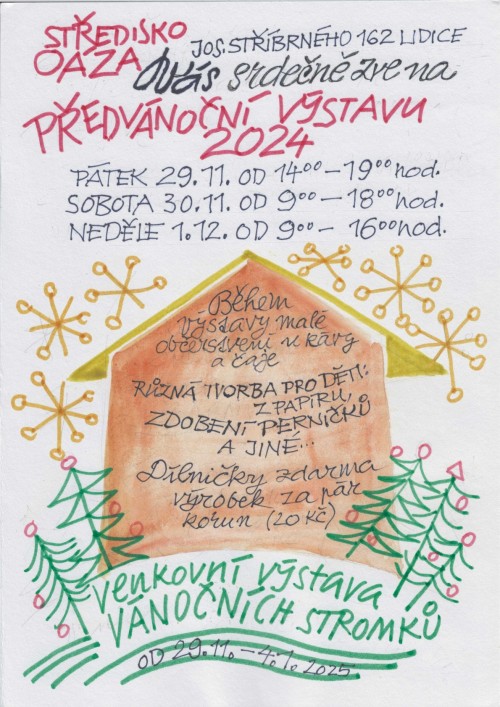 STŘEDISKO
OÁZA
JOS. STŘÍBRNÉHO 162 LIDICE
Vás srdečně zve na
PŘEDVÁNOČNÍ VÝSTAVU
2024
PÁTEK 29.11. OD 14⁰⁰ – 19⁰⁰ hod.
SOBOTA 30.11. OD 9⁰⁰ – 18⁰⁰ hod.
NEDĚLE 1.12. OD 9⁰⁰ – 16⁰⁰ hod.
Během
výstavy malé
občerstvení u kávy
a čaje
RŮZNÁ TVORBA PRO DĚTI:
Z PAPÍRU,
ZDOBENÍ PERNÍČKŮ
A JINÉ...
Dílničky zdarma
výrobek za pár
korun (20 Kč)
Venkovní výstava
VÁNOČNÍCH STROMKŮ
OD 29.11. – 4.1. 2025